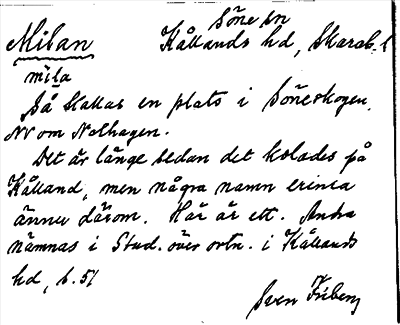 Söne sn
Milan Kållands hd, Skarab. l
mila
Så kallas en plats i Söneskogen,
NV om Nolhagen.
Det är länge sedan det kolades på
Kålland, men några namn erinra
ännu därom. Här är ett. Andra
nämnas i Stud. över ortn. i Kållands
hd, s. 51
Sven Friberg